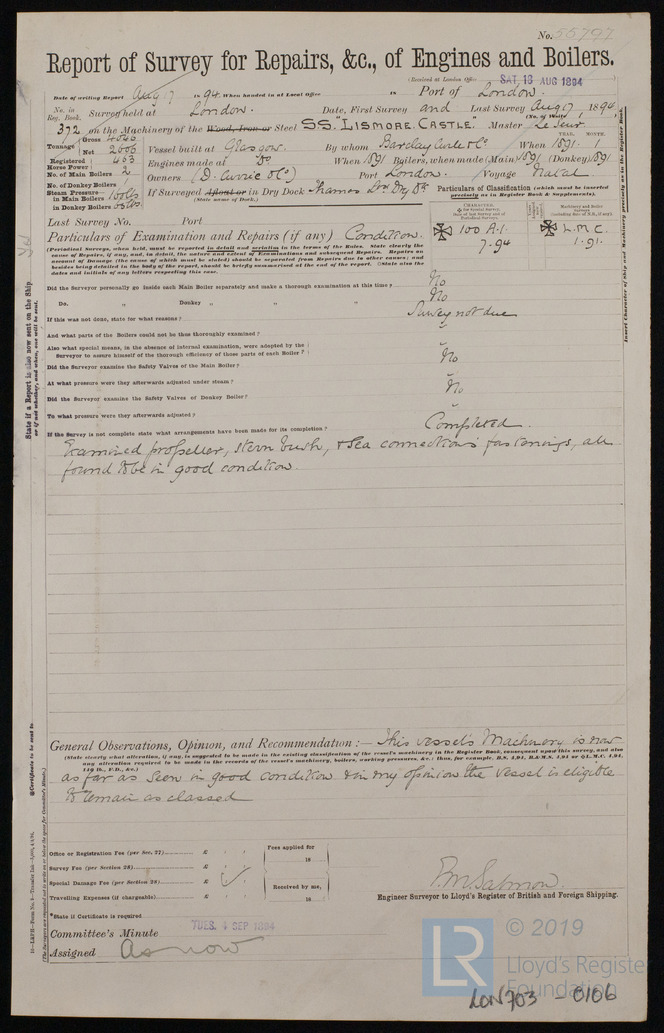 No. 55797
Report of Survey for Repairs, &c., of Engines and Boilers.
(Received at London Office SAT. 18 AUG 1894
Date of writing Report Aug 17 1894 When handed in at Local Office 18 Port of London.
No. in Reg. Book. Survey held at London. Date, First Survey and Last Survey Aug 17 1894
(No. of Visits 1)
372 on the Machinery of the Wood, Iron or Steel SS. "LISMORE CASTLE." Master Le Sueur
Tonnage Gross 4046 Net 2606 Vessel built at Glasgow. By whom Barclay Curle & Co. When YEAR. 1891 MONTH. 1
Registered Horse Power 463 Engines made at Do When 1891 Boilers, when made (Main) 1891 (Donkey) 1891
No. of Main Boilers 2 Owners (D. Currie & Co) Port London. Voyage Natal
No. of Donkey Boilers 1
Steam Pressure in Main Boilers 160 lbs in Donkey Boilers If Surveyed Afloat or in Dry Dock Thames Dry Dk
(State name of Dock.)
Particulars of Classification (which must be inserted precisely as in Register Book & Supplements).
Last Survey No. Port
CHARACTER.
100 A.1. L.M.C.
7.94 1.91.
Particulars of Examination and Repairs (if any) Condition.
(Periodical Surveys, when held, must be reported in detail and seriatim in the terms of the Rules. State clearly the
cause of Repairs, if any, and, in detail, the nature and extent of Examinations and subsequent Repairs. Repairs on
account of Damage (the cause of which must be stated) should be separated from Repairs due to other causes; and
besides being detailed in the body of the report, should be briefly summarised at the end of the report. State also the
dates and initials of any letters respecting this case.
Did the Surveyor personally go inside each Main Boiler separately and make a thorough examination at this time? No
Do. " Donkey " " " No
If this was not done, state for what reasons? Survey not due
And what parts of the Boilers could not be thus thoroughly examined?
Also what special means, in the absence of internal examination, were adopted by the
Surveyor to assure himself of the thorough efficiency of those parts of each Boiler?
Did the Surveyor examine the Safety Valves of the Main Boiler? No
At what pressure were they afterwards adjusted under steam?
Did the Surveyor examine the Safety Valves of Donkey Boiler? No
To what pressure were they afterwards adjusted?
If the Survey is not complete state what arrangements have been made for its completion? Completed.
Examined propeller, stern bush, & sea connections fastenings, all
found to be in good condition.
General Observations, Opinion, and Recommendation:— This vessel's Machinery is now
(State clearly what alteration, if any, is suggested to be made in the existing classification of the vessel's machinery in the Register Book, consequent upon this survey, and also
any alteration required to be made in the records of the vessel's machinery, boilers, working pressures, &c.; thus, for example, B.S. 4,94, B.&M.S. 4,94 or L.M.C. 4,94,
as far as seen in good condition & in my opinion the vessel is eligible
to remain as classed
Office or Registration Fee (per Sec. 27) £
Survey Fee (per Section 28) £
Special Damage Fee (per Section 28) £
Travelling Expenses (if chargeable) £
Fees applied for
18
Received by me,
18
Engineer Surveyor to Lloyd's Register of British and Foreign Shipping.
*State if Certificate is required
Committee's Minute TUES. 4 SEP 1894
Assigned As now
State if a Report is also now sent on the Ship
or if not whether, and when, one will be sent.
Insert Character of Ship and Machinery precisely as in the Register Book
LR
© 2019
Lloyd's Register
Foundation
LON703 - 0106